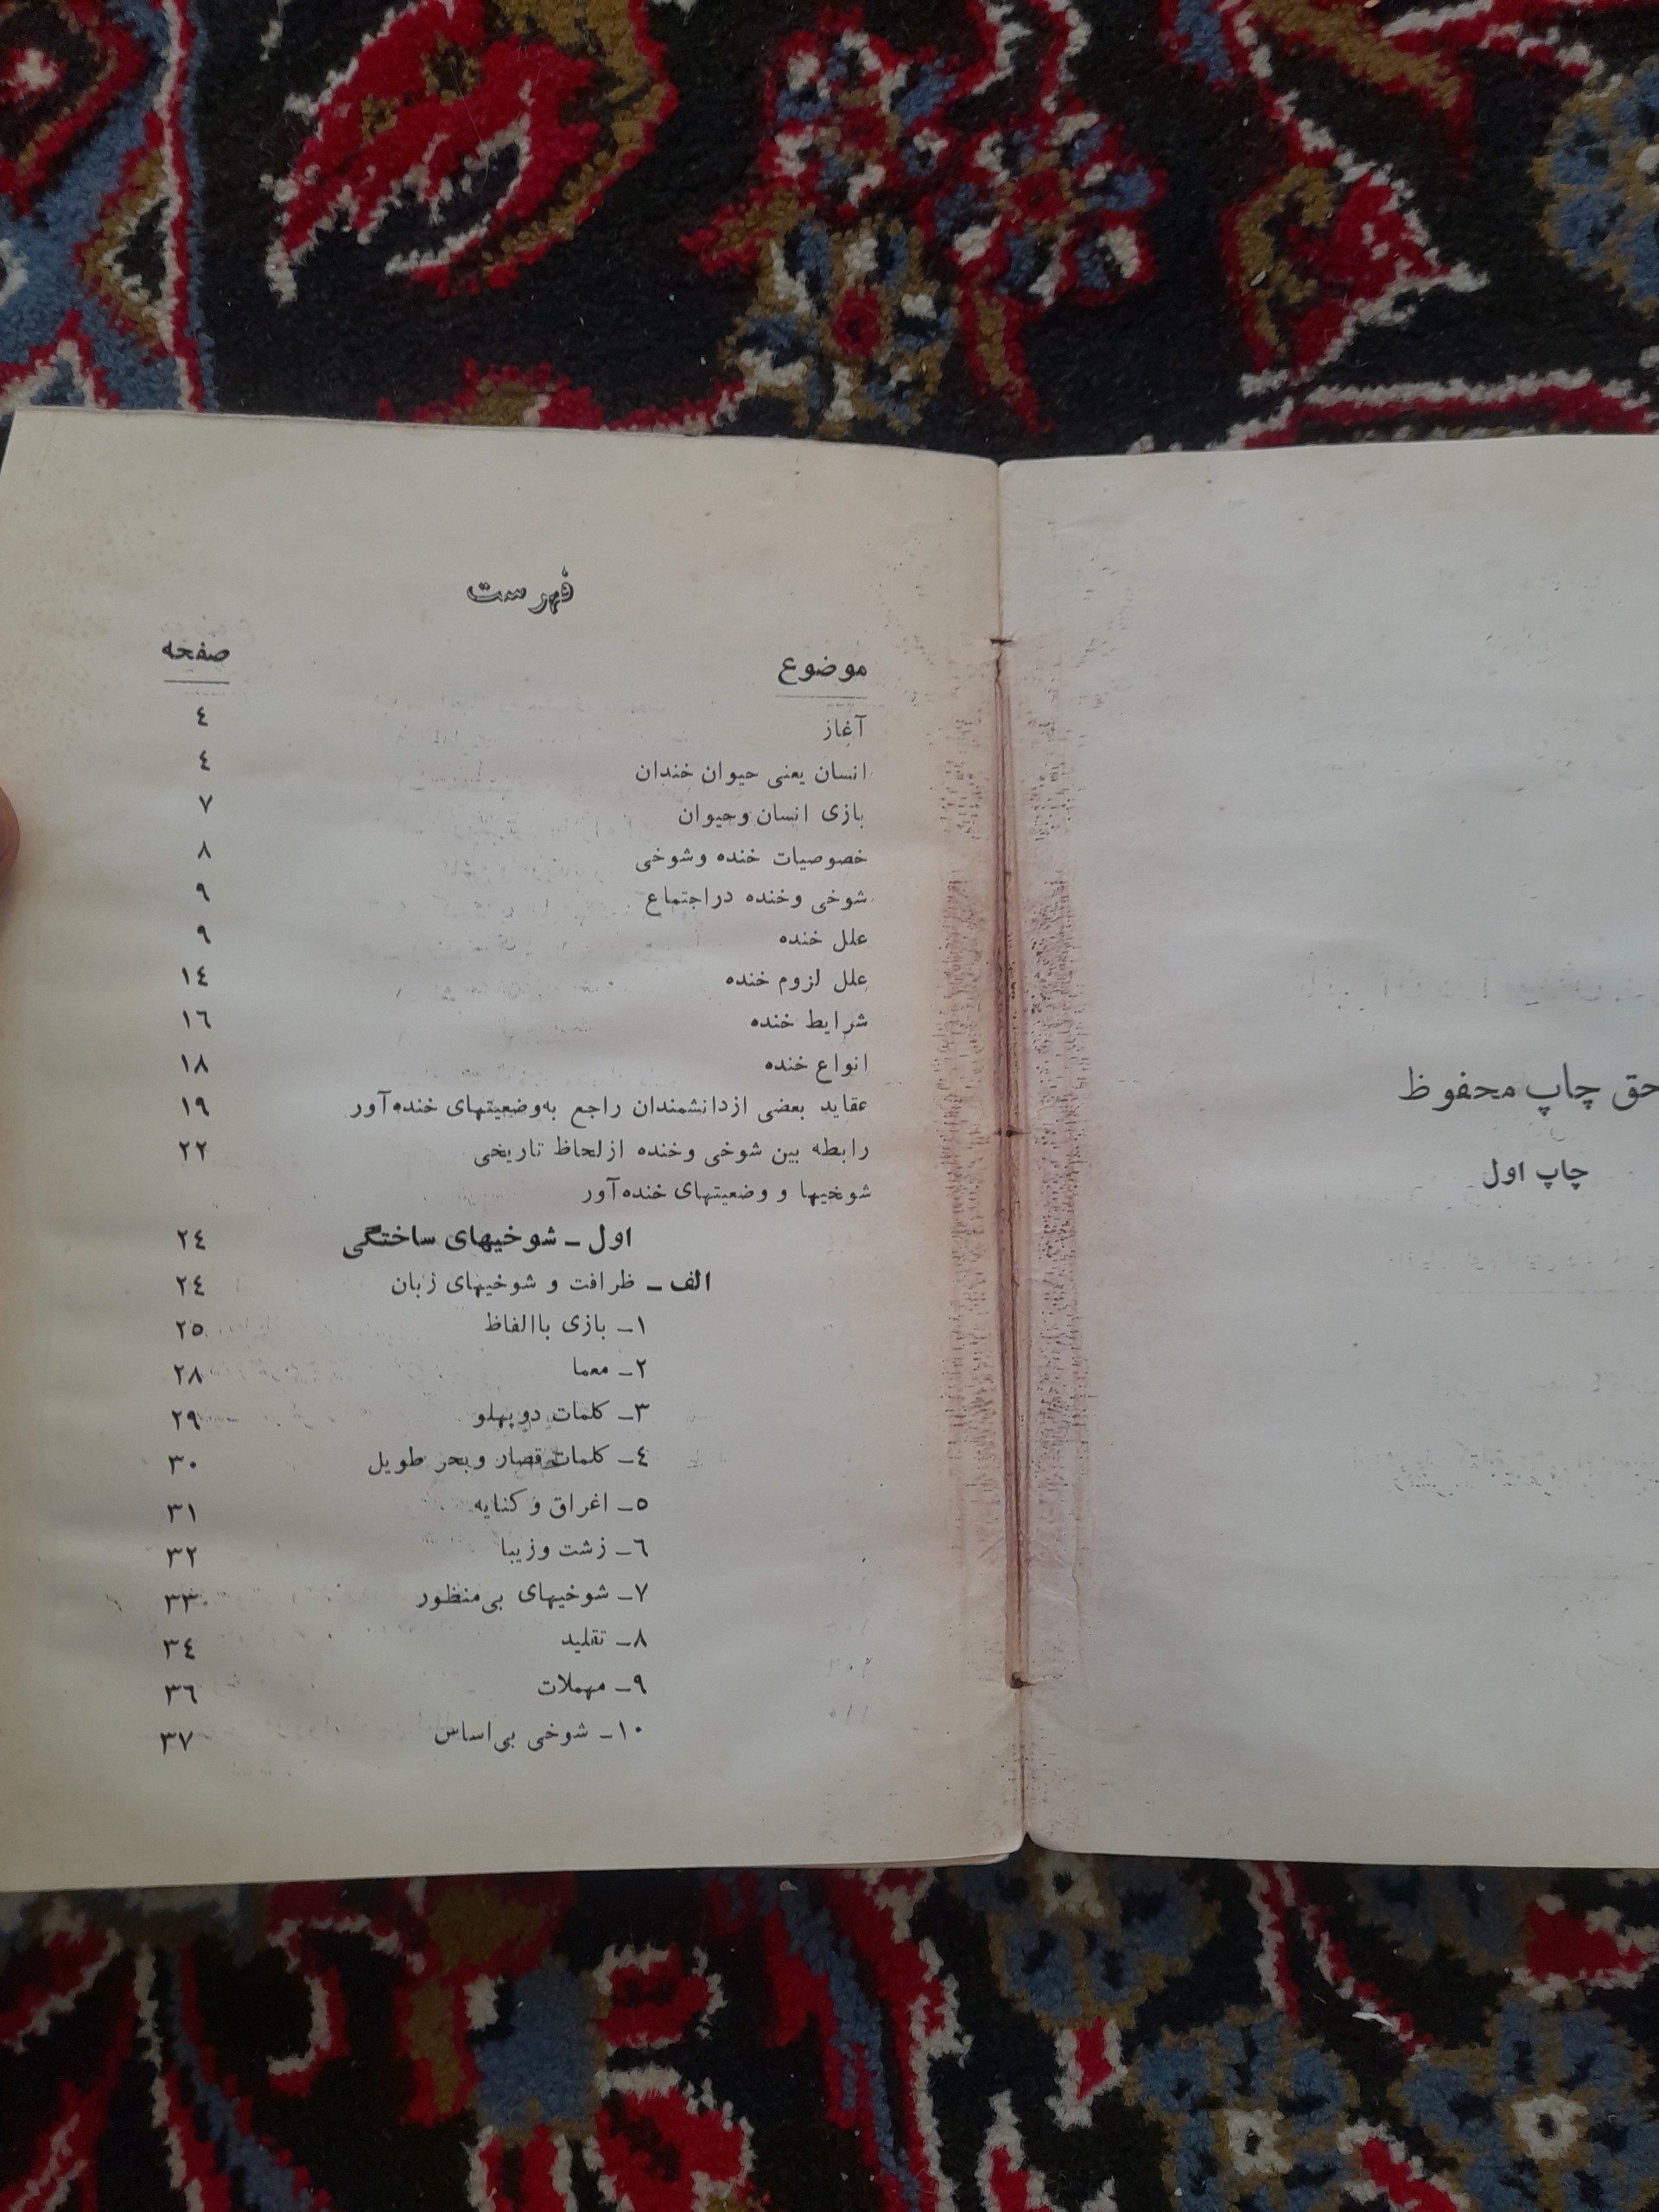 حق چاپ محفوظ
چاپ اول
فهرست
موضوع صفحه
آغاز ٤
انسان یعنی حیوان خندان ٤
بازی انسان وحیوان ٧
خصوصیات خنده وشوخی ٨
شوخی وخنده دراجتماع ٩
علل خنده ٩
علل لزوم خنده ١٤
شرایط خنده ١٦
انواع خنده ١٨
عقاید بعضی ازدانشمندان راجع به‌وضعیتهای خنده‌آور ١٩
رابطه بین شوخی وخنده ازلحاظ تاریخی ٢٢
شوخیها و وضعیتهای خنده‌آور
اول ـ شوخیهای ساختگی ٢٤
الف ـ ظرافت و شوخیهای زبان ٢٤
١ـ بازی باالفاظ ٢٥
٢ـ معما ٢٨
٣ـ کلمات دوپهلو ٢٩
٤ـ کلمات قصار وبحر طویل ٣٠
٥ـ اغراق و کنایه ٣١
٦ـ زشت وزیبا ٣٢
٧ـ شوخیهای بی‌منظور ٣٣
٨ـ تقلید ٣٤
٩ـ مهملات ٣٦
١٠ـ شوخی بی‌اساس ٣٧